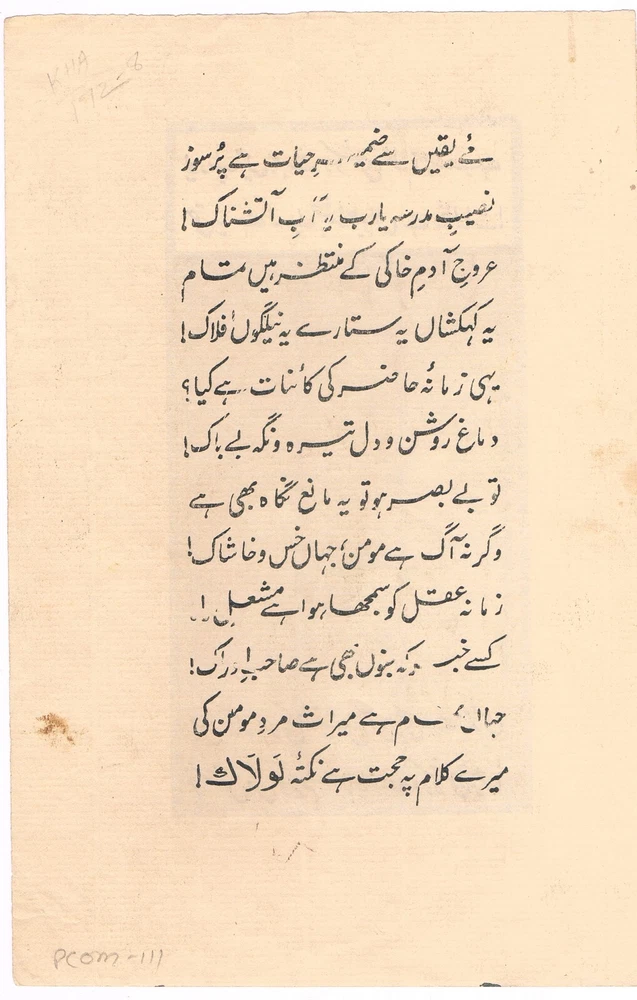 KHA
192=8
مئے یقیں سے ضمیرِ حیات ہے پُرسوز
نصیبِ مدرسہ یارب یہ آبِ آتشناک!
عروجِ آدمِ خاکی کے منتظر ہیں تمام
یہ کہکشاں یہ ستارے یہ نیلگوں افلاک!
یہی زمانۂ حاضر کی کائنات ہے کیا؟
دماغ روشن و دل تیرہ و نگہ بے باک!
تو بے بصر ہو تو یہ مانع نگاہ بھی ہے
وگرنہ آگ ہے مومن، جہاں خس و خاشاک!
زمانہ عقل کو سمجھا ہوا ہے مشعل
کسے خبر کہ جنوں بھی ہے صاحبِ ادراک!
جہاں تمام ہے میراث مردِ مومن کی
میرے کلام پہ حجت ہے نکتۂ لَولَاك!
PCOM-111